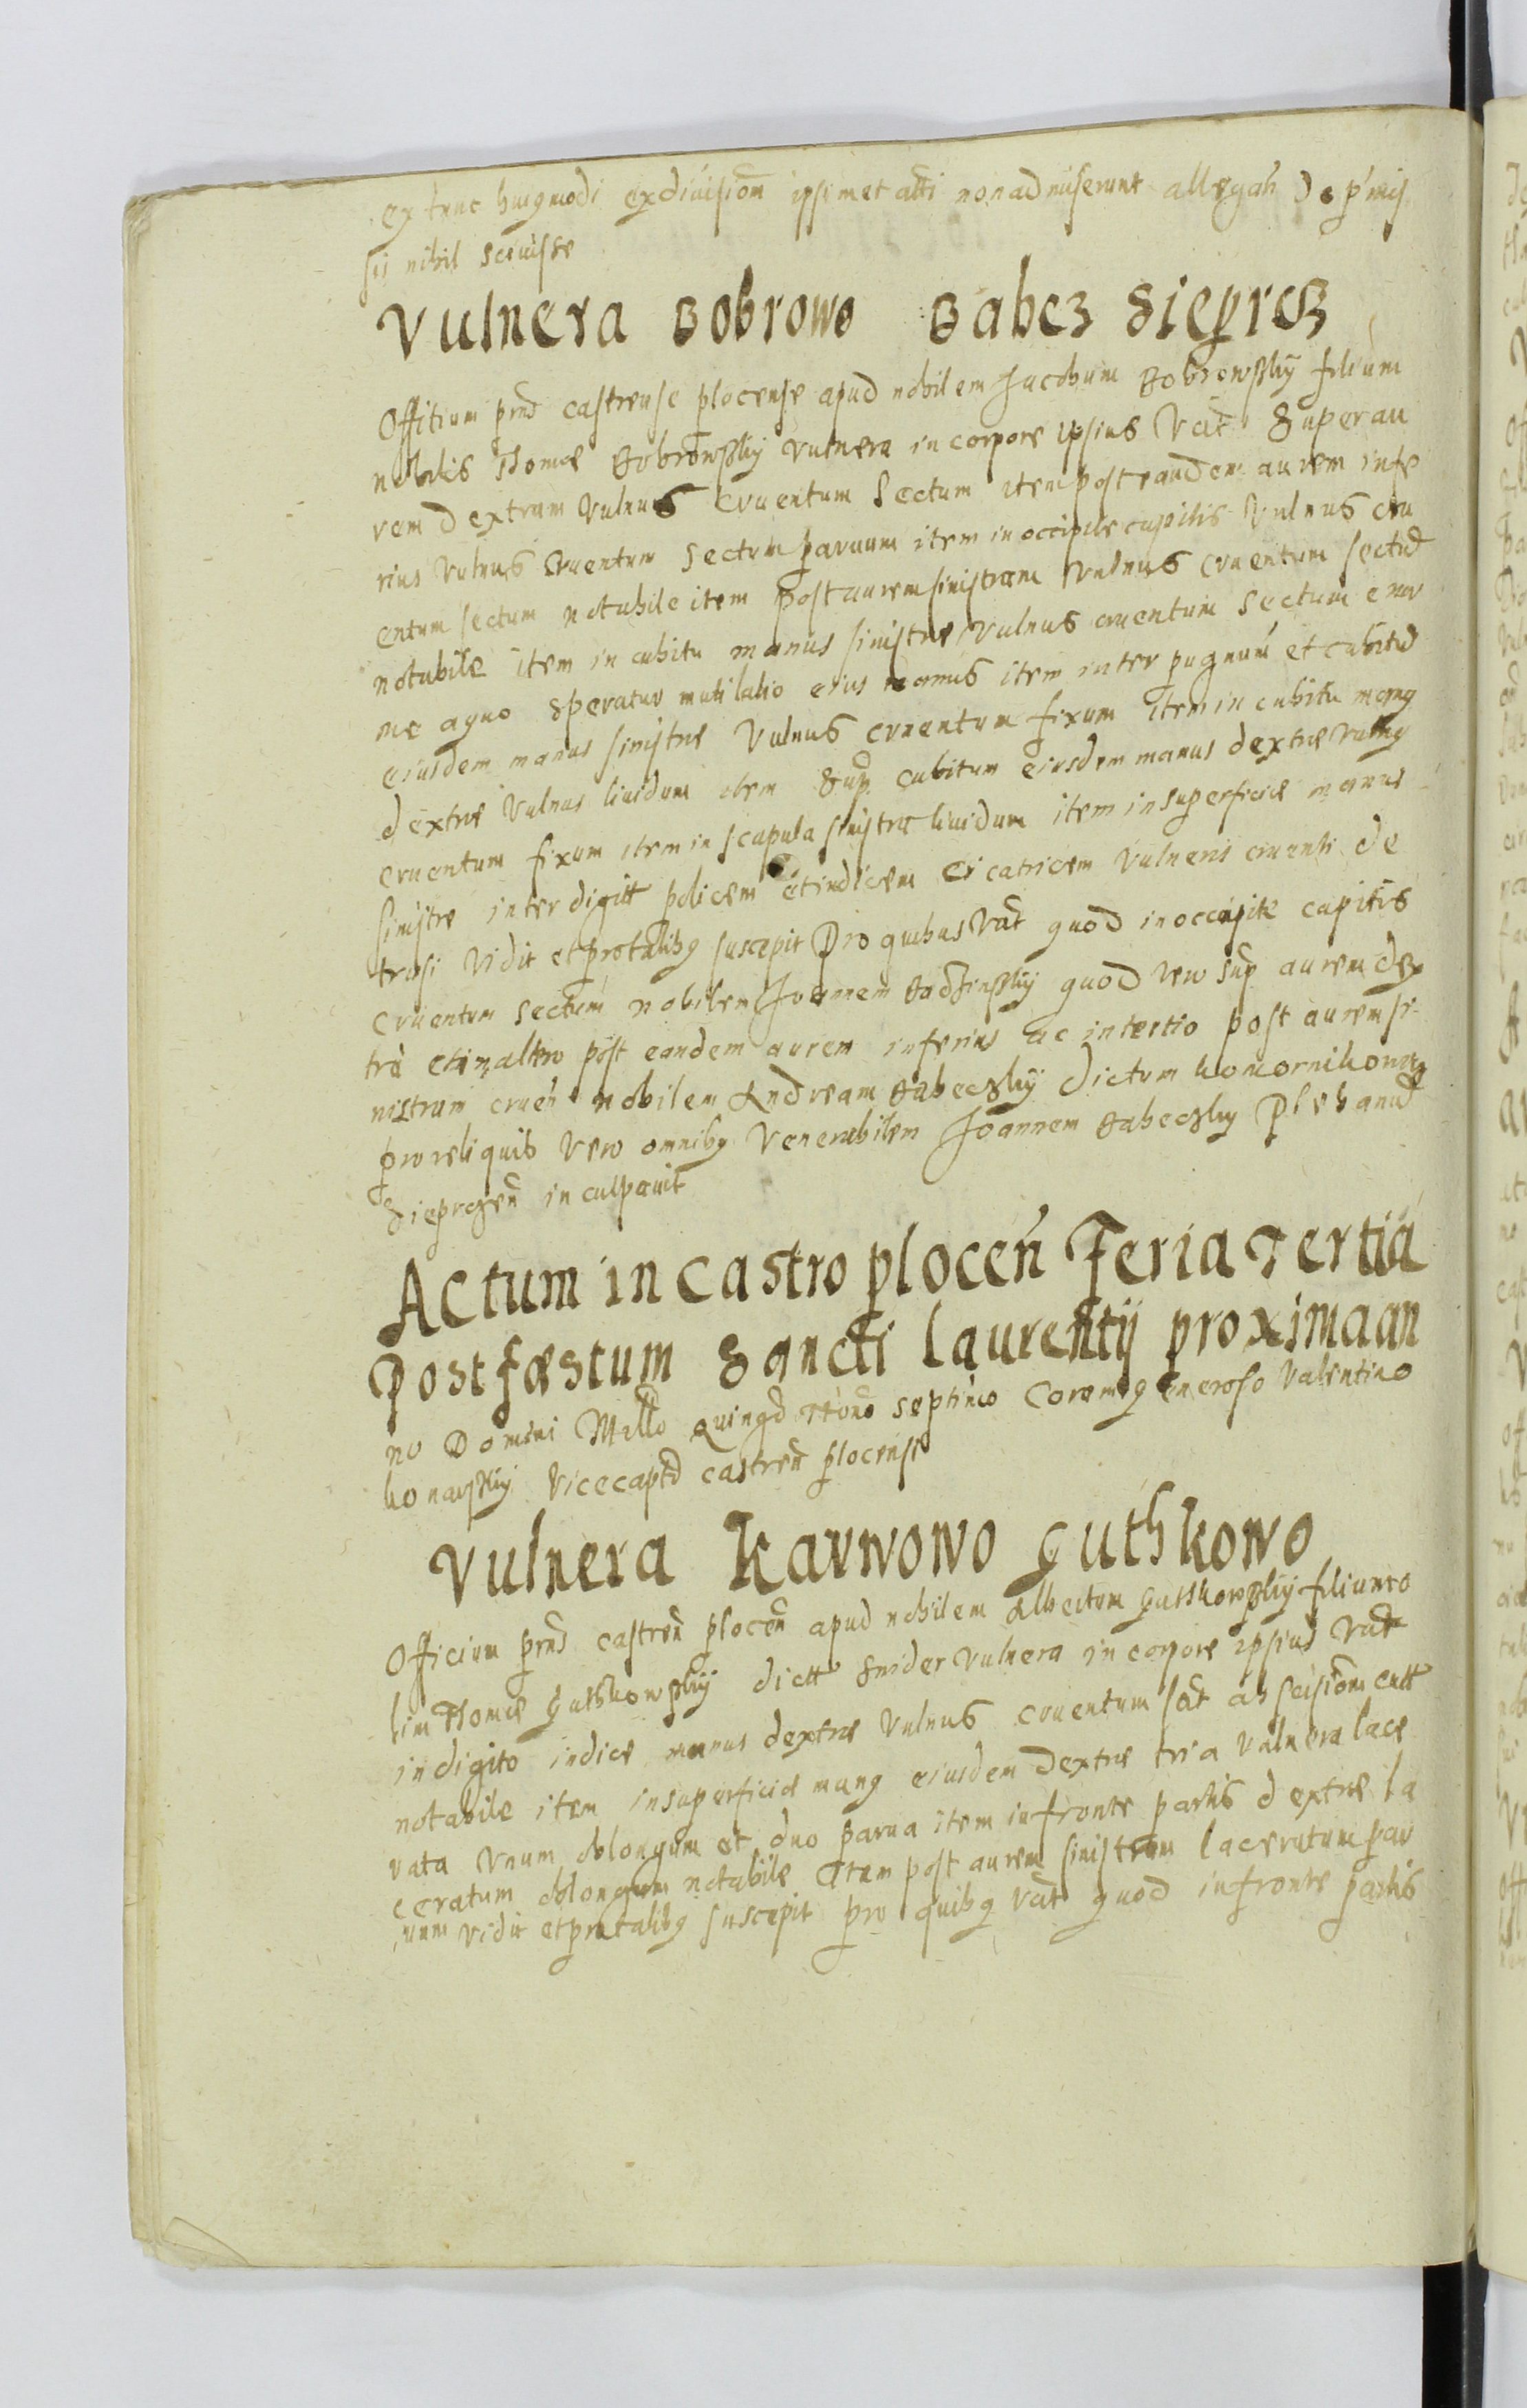 ex tunc huigmodi exdiuisiom ipsimet acti non admiserunt allegan de pmis
sis nihil sciuisse
Vulnera Bobrowo Babecz Sieprcz
Offitium pns castrense plocense apud nobilem Jacobum Bobrowsky filium
nobilis Thomæ Bobrowsky vulnera in corpore ipsius Vat Super au
rem dextram vulnus cruentum sectum item post eandem aurem infe
rius vulnus cruentum sectum paruum item in occipite capitis vulnus cru
entum sectum notabile item post aurem sinistram vulnus cruentum sectu
notabile item in cubitu manus sinistræ vulnus cruentum sectum enor
me a quo speratur mutilatio eius manus item inter pugnum et cubitu
eiusdem manus sinistræ vulnus cruentum fixum item in cubitu mang
dextræ vulnus liuidum item sup cubitum eiusdem manus dextræ vulng
cruentum fixum item in scapula sinistra liuidum item in superficie manus
sinistre inter digitt policem et indicem cicatricem vulneris cruenti de
trusi vidit et pro talibg suscepit Pro quibus Vat quod in occipite capitis
cruentum sectum nobilem Joannem quod vero sup aurem dex
tra et in altero post eandem aurem inferius ac in tertio post aurem si
nistram cruen nobilem Andream Babeczky dictum
pro reliquis vero omnibg Venerabilem Joannem Babeczky Plebanu
Sieprczen inculpauit
Actum in Castro plocen Feria Tertia
Post fæstum Sancti Laurentij proxima an
no Domini Millo Quingd Nono septimo Coram generoso Valentino
Vicecaptd castren plocense
Vulnera Karwowo Guthkowo
Officium pns castren plocen apud nobilem Albertum Guthkowsky filium o
lim Thomæ Guthkowsky dictt Snider vulnera in corpore ipsius Vat
in digito indice manus dextræ vulnus cruentum sat abscisiom cutt
notabile item in superficie mang eiusdem dextræ tria vulnera lace
rata vnum oblongum et duo parua item in fronte partis dextræ la
ceratum oblongum notabile item post aurem sinistram laceratum par
uum vidit et pro talibg suscepit pro quibg Vat quod in fronte partis